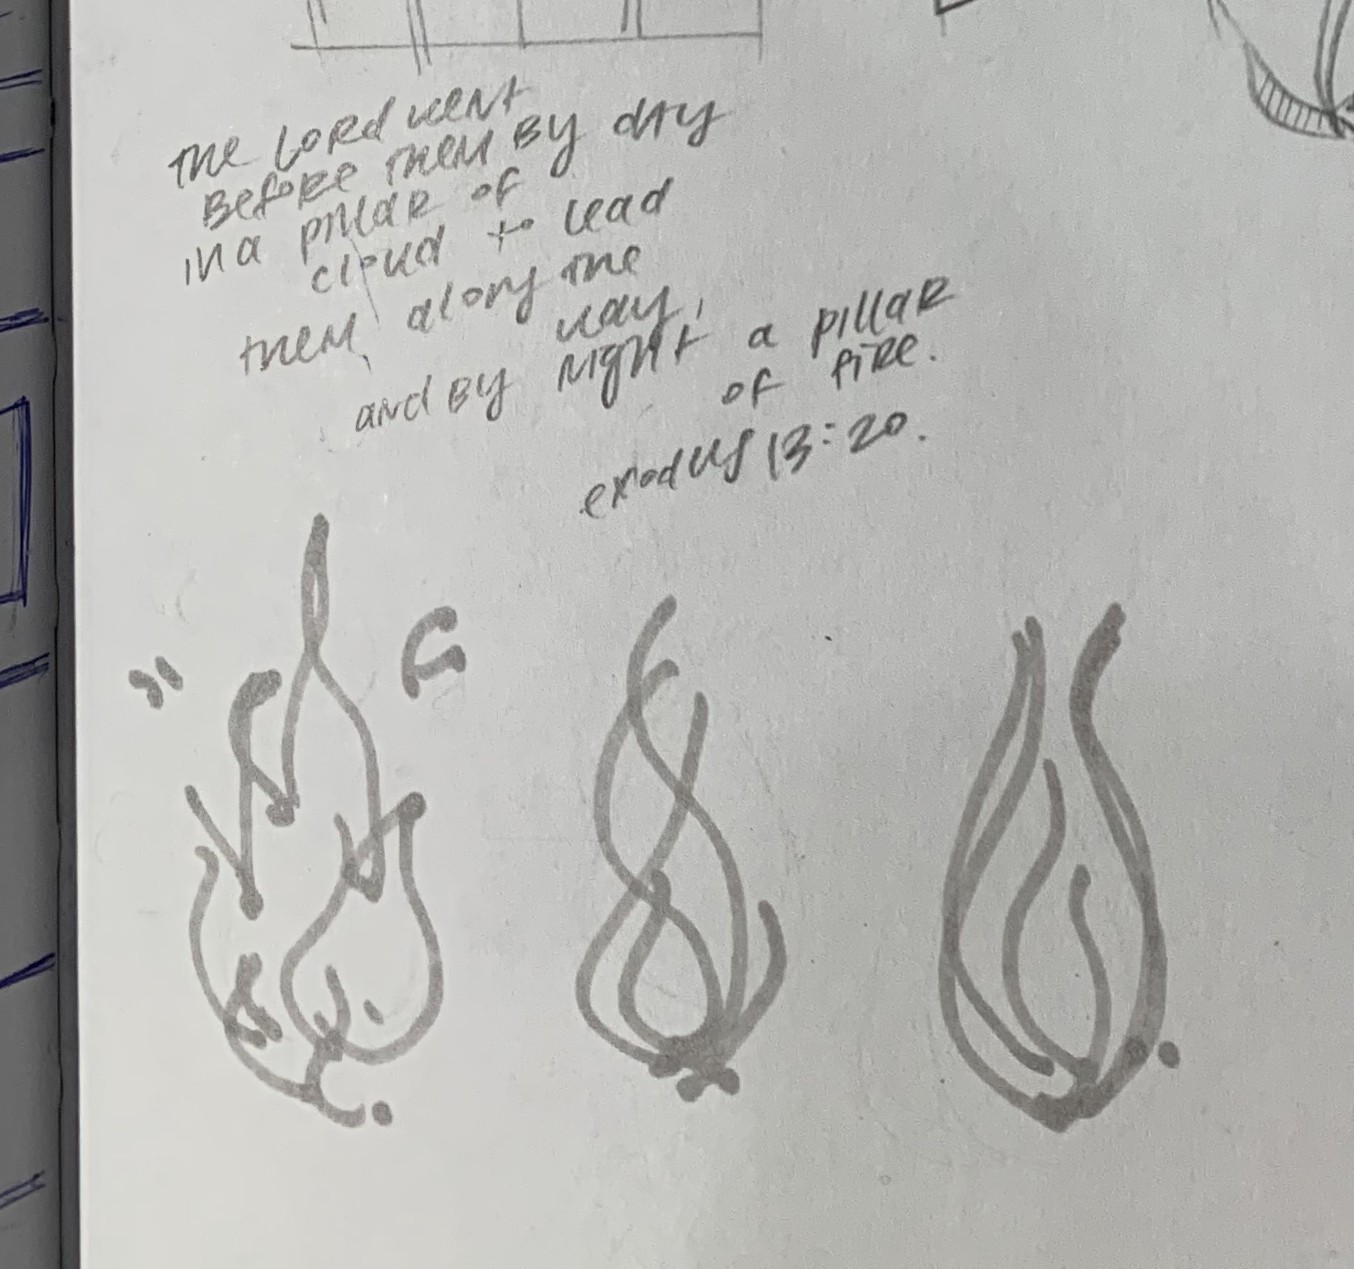 THE LORD WENT
BEFORE THEM BY dAy
IN a pIllaR of
cloud to lead
them along THE
way,
aNd By NIgHt a pIllaR
of fIRE.
exodus 13:20.